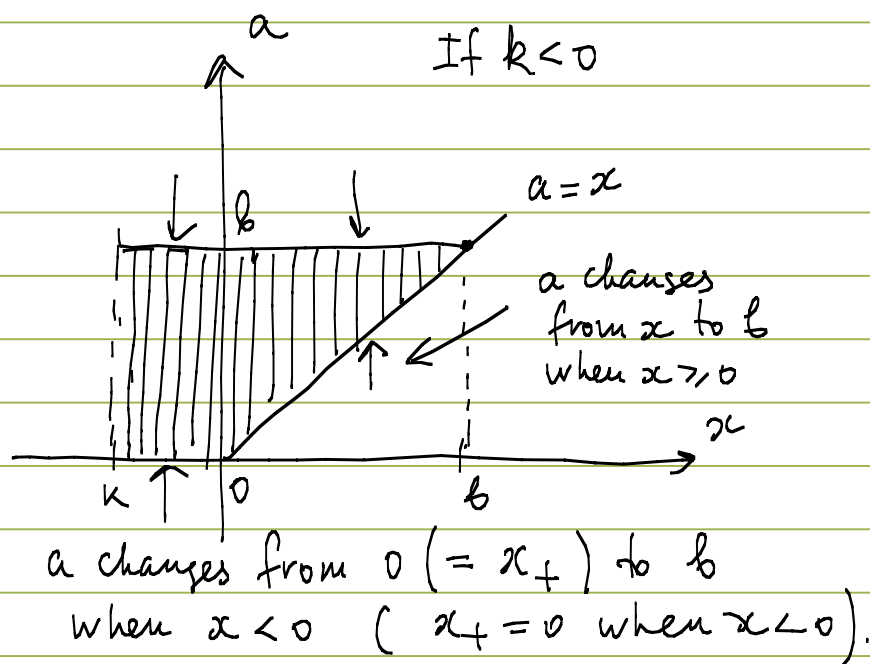 a
If k<0
b
a=x
a changes
from x to b
when x⩾0
x
k
0
b
a changes from 0 (= x₊) to b
when x<0 (x₊=0 when x<0).